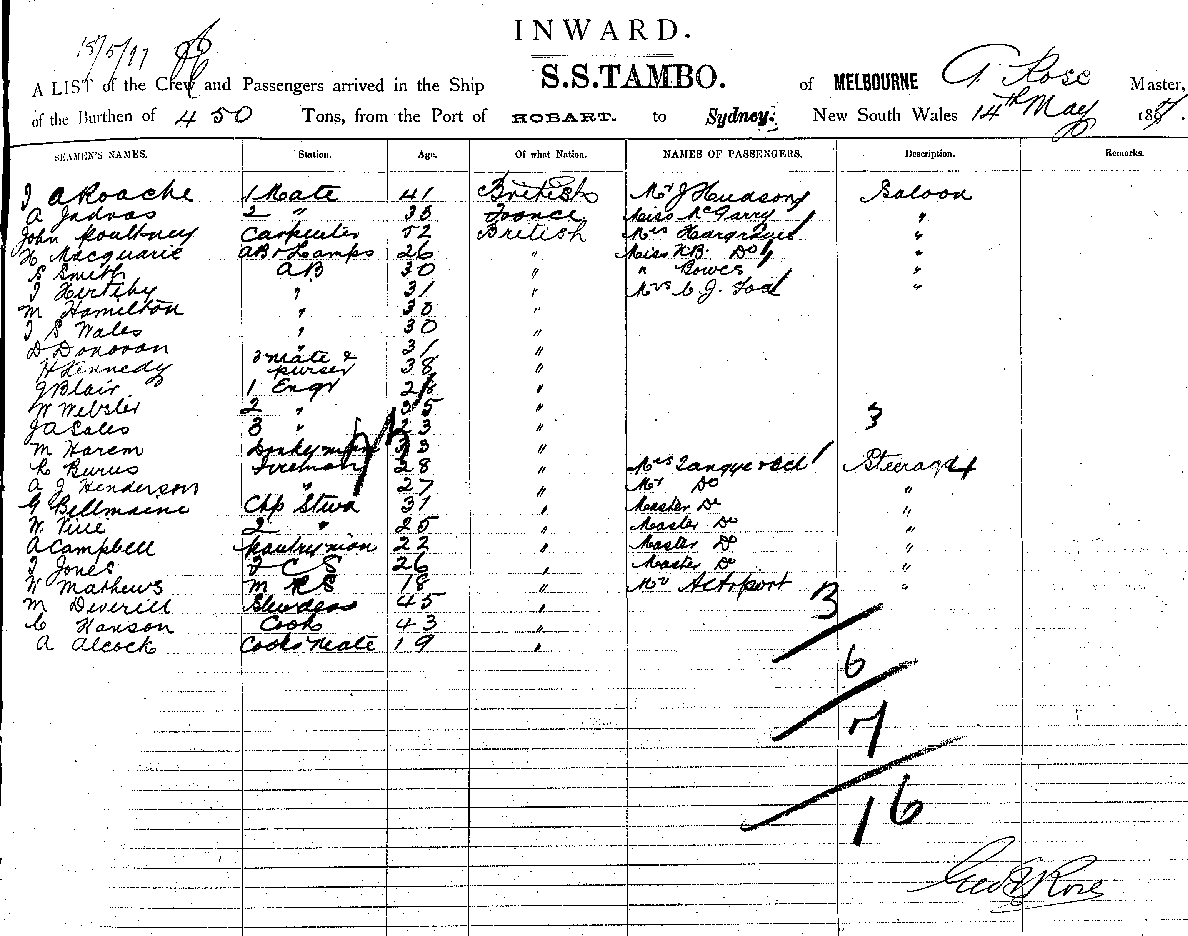 INWARD.
15/5/97
A LIST of the Crew and Passengers arrived in the Ship S.S.TAMBO. of MELBOURNE G Rose Master,
of the Burthen of 450 Tons, from the Port of HOBART. to Sydney. New South Wales 14th May 1897.
SEAMEN'S NAMES. Station. Age. Of what Nation. NAMES OF PASSENGERS. Description. Remarks.
J A Roache 1 Mate 41 British Mr J Hudson Saloon
A 2 " 35 France Miss McGarry "
John Poultney Carpenter 52 British Mrs Hargraves "
H Macquarie AB & Lamps 26 " Miss Do "
S Smith AB 30 " " Bowes "
J " 31 " Mrs C J "
M Hamilton " "
J S Wales " 30 "
D Donovan 31 "
H Kennedy 3 Mate & purser 38 "
J Blair 1 Engr 28 "
W Webster 2 " 35 " 3
3 "
M Harem Donkeyman "
Fireman 28 " Mrs Steerage
A J Henderson " 27 Mr Do "
G Bellmaine Chf Stwd 31 " Master Do "
W 2 " 25 " Master Do "
A Campbell Pantryman 22 " Master Do "
J Jones 26 " Master Do "
W Mathews 18 " Mr "
M Deverill 45 " 3
C Hanson Cook 43 "
A Alcock Cooks Mate 19 "
6
7
16
Geo Rose